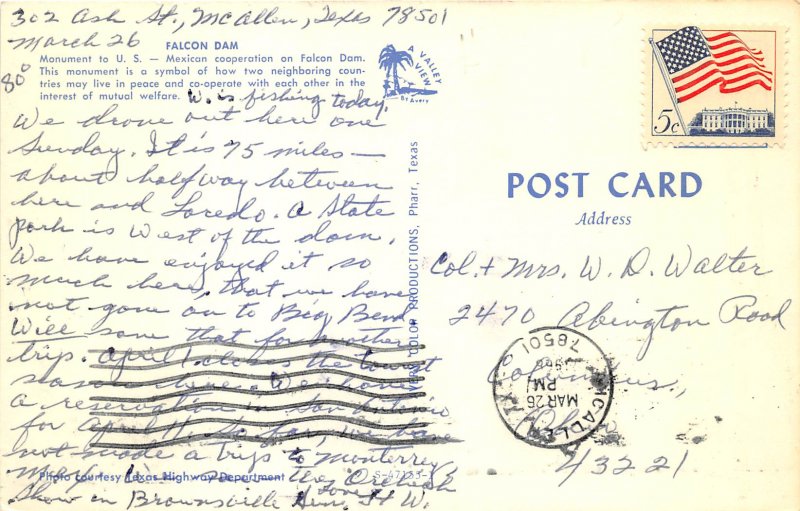 302 Ash St., McAllen, Texas 78501
March 26
80°
FALCON DAM
Monument to U. S. — Mexican cooperation on Falcon Dam.
This monument is a symbol of how two neighboring coun-
tries may live in peace and co-operate with each other in the
interest of mutual welfare.
W. is fishing today.
We drove out here one
Sunday. It is 75 miles —
about halfway between
here and Loredo. A State
park is West of the dam.
We have enjoyed it so
much here, that we have
not gone on to Big Bend
Will save that for another
trip. April 1 closes the tourist
season here. We have
a reservation in San Antonio
for April 11. So far, we have
not made a trip to Monterrey
Show in Brownsville Sun.
Love
H W.
Photo courtesy Texas Highway Department
S-47153-1
A VALLEY
VIEW
By Avery
COLOR PRODUCTIONS, Pharr, Texas
5c
POST CARD
Address
Col. + Mrs. W. D. Walter
2470 Abington Road
Columbus,
Ohio
43221
MCALLEN
MAR 26
PM
1966
78501